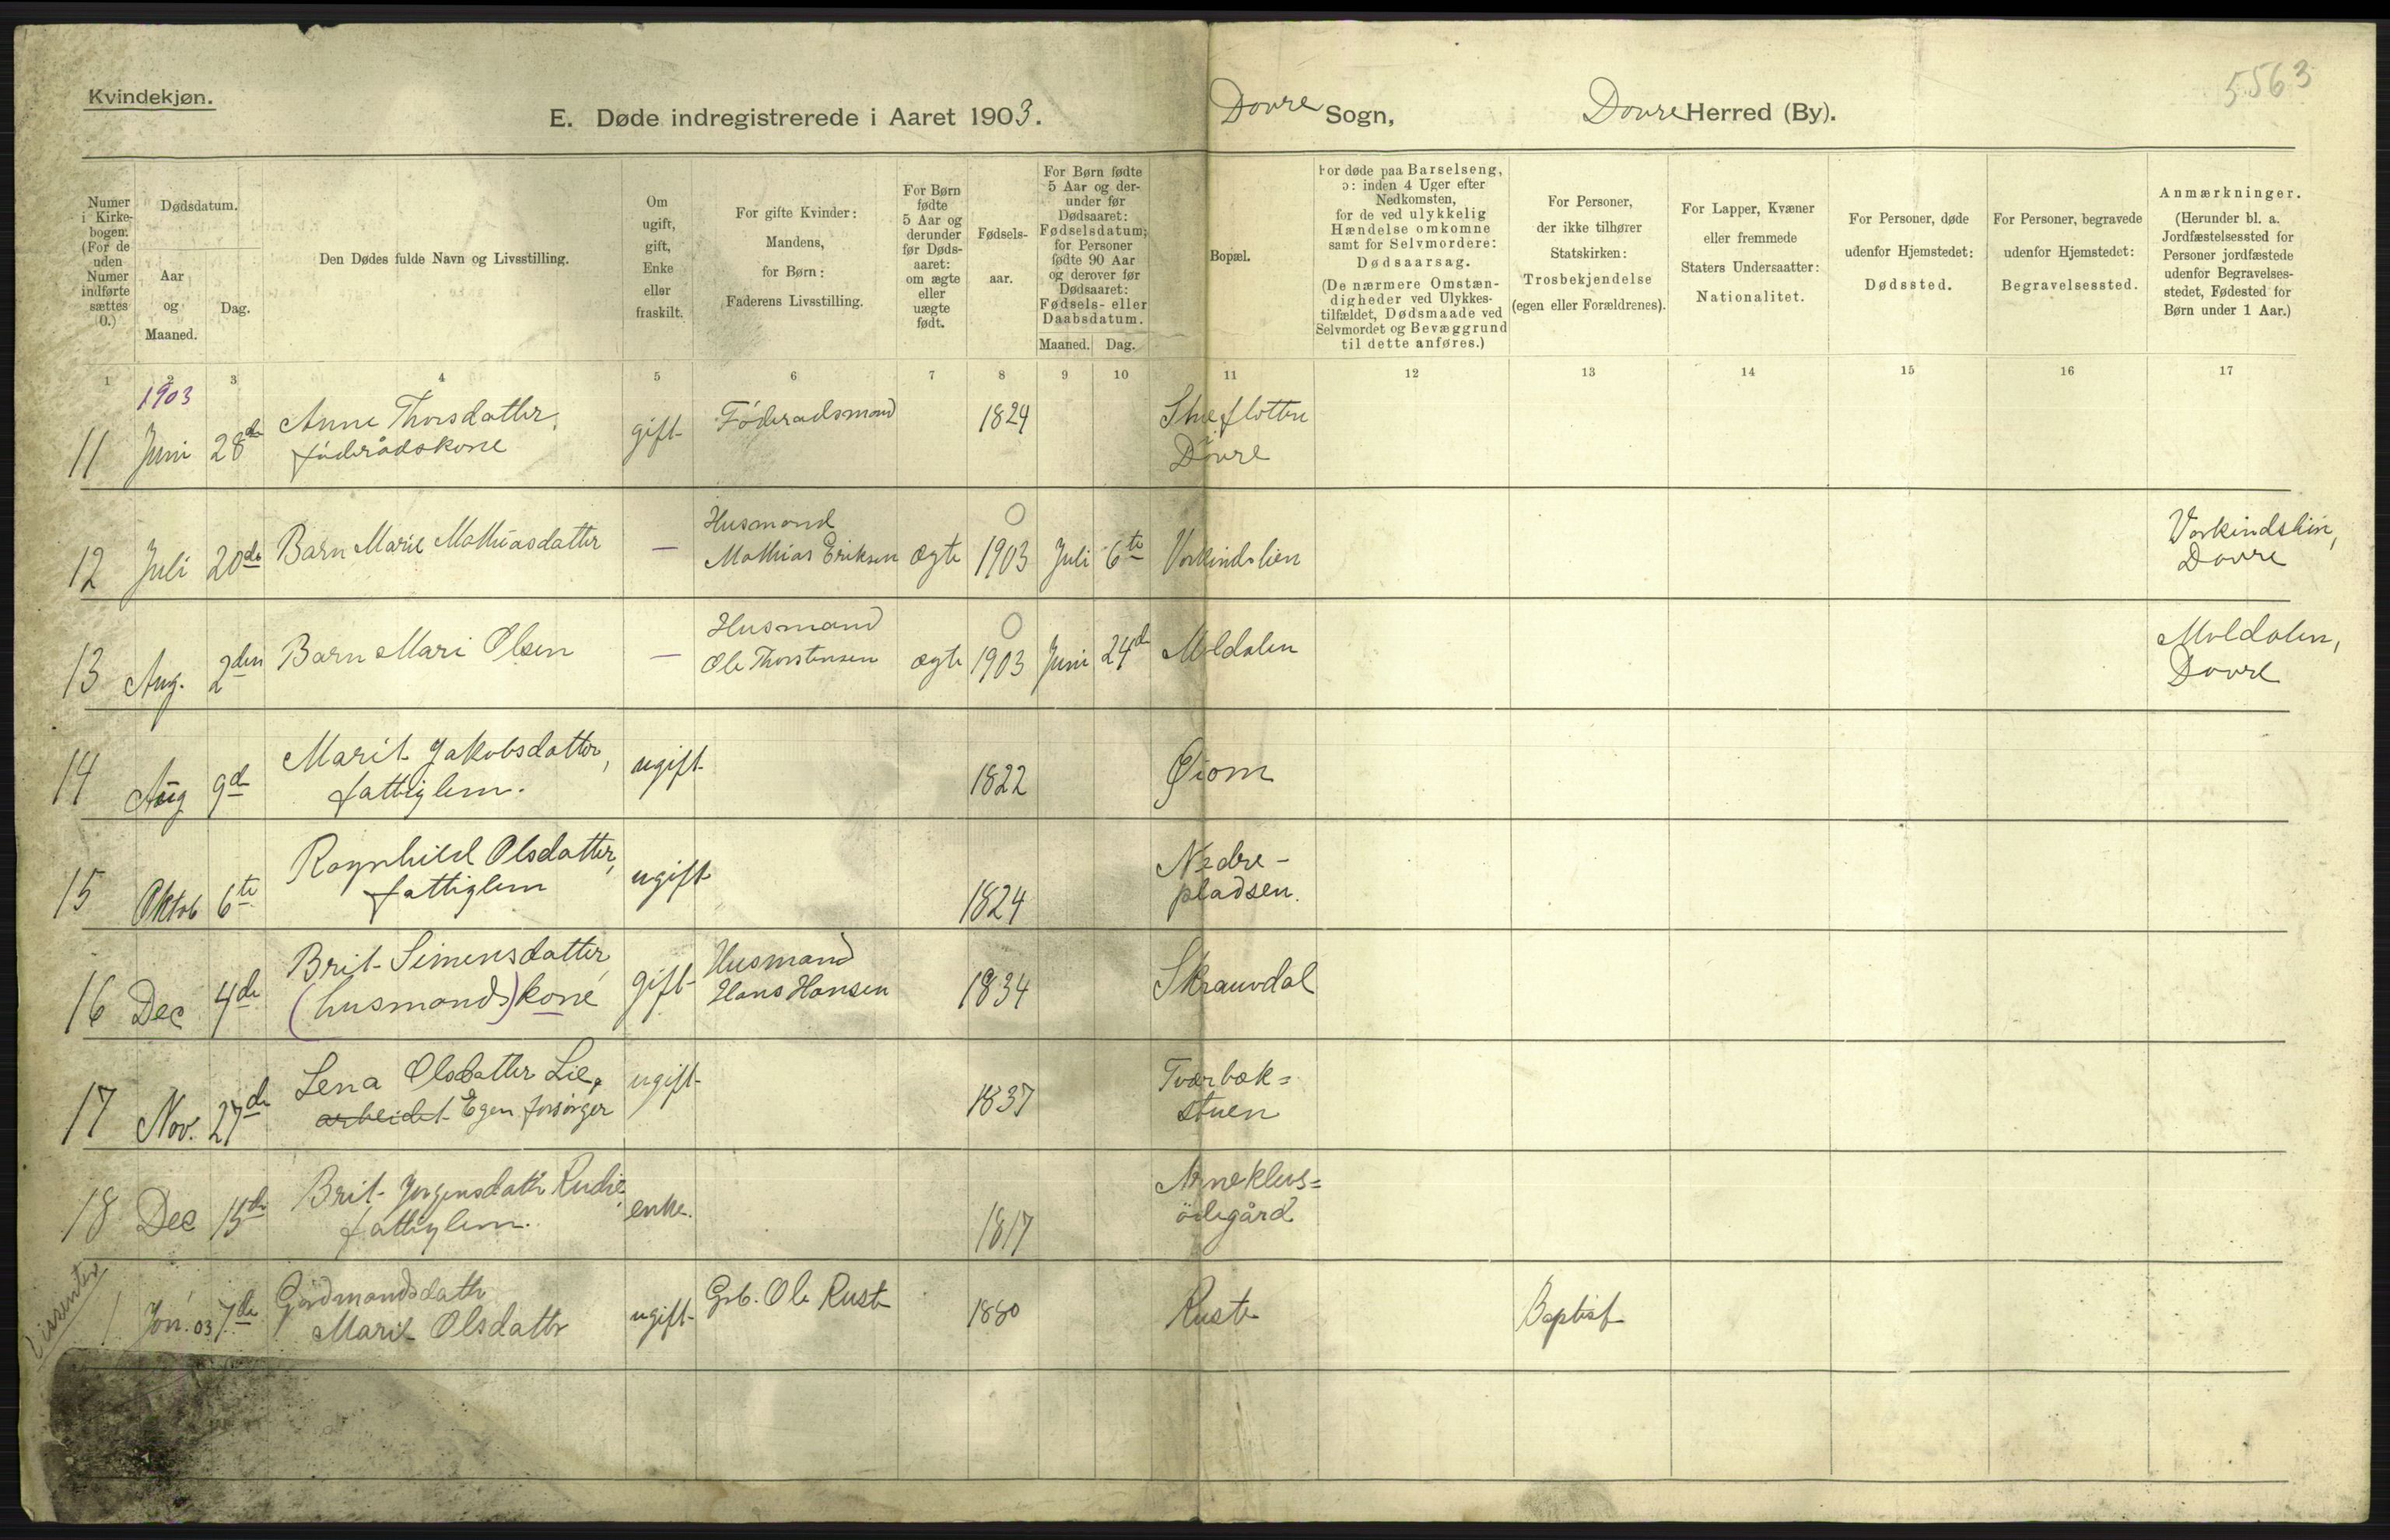 Kvindekjøn.
5563
E. Døde indregistrerede i Aaret 1903.
Dovre Sogn,
Dovre Herred (By).
Numer i Kirkebogen. (For de uden Numer indførte sættes 0.)
Dødsdatum.
Aar og Maaned.
Dag.
Den Dødes fulde Navn og Livsstilling.
Om ugift, gift, Enke eller fraskilt.
For gifte Kvinder: Mandens, for Børn: Faderens Livsstilling.
For Børn fødte 5 Aar og derunder før Dødsaaret: om ægte eller uægte født.
Fødselsaar.
For Børn fødte 5 Aar og derunder før Dødsaaret: Fødselsdatum; for Personer fødte 90 Aar og derover før Dødsaaret: Fødsels- eller Daabsdatum.
Maaned. Dag.
Bopæl.
For døde paa Barselseng, ɔ: inden 4 Uger efter Nedkomsten, for de ved ulykkelig Hændelse omkomne samt for Selvmordere: Dødsaarsag.
(De nærmere Omstændigheder ved Ulykkestilfældet, Dødsmaade ved Selvmordet og Bevæggrund til dette anføres.)
For Personer, der ikke tilhører Statskirken: Trosbekjendelse (egen eller Forældrenes).
For Lapper, Kvæner eller fremmede Staters Undersaatter: Nationalitet.
For Personer, døde udenfor Hjemstedet: Dødssted.
For Personer, begravede udenfor Hjemstedet: Begravelsessted.
Anmærkninger. (Herunder bl. a. Jordfæstelsessted for Personer jordfæstede udenfor Begravelsesstedet, Fødested for Børn under 1 Aar.)
1 2 3 4 5 6 7 8 9 10 11 12 13 14 15 16 17
1903
11 Juni 28de Anne Thorsdatter, føderådskone gift Føderadsmand 1824 i Dovre
12 Juli 20de Barn Marie Mathiasdatter — Husmand Mathias Eriksen ægte 0 1903 Juli 6te Vorkindslien Vorkindslien, Dovre
13 Aug. 2den Barn Mari Olsen — Husmand Ole Thorstensen ægte 0 1903 Juni 24de Moldalen Moldalen, Dovre
14 Aug 9de Marit Jakobsdatter, fattiglem. ugift 1822 Øiom
15 Oktob 6te Ragnhild Olsdatter, fattiglem ugift 1824 Nedre-pladsen.
16 Dec 4de Brit Simensdatter, (husmands)kone gift Husmand Hans Hansen 1834 Skrauvdal
17 Nov. 27de Lena Olsdatter Lie, arbeidet Egen forsørger ugift 1837 Tværbæk=stuen
18 Dec 15de Brit Jørgensdatr Rudie, fattiglem. enke. 1817 ödegård
Dissenter
1 Jan. 03 7de Gårdmandsdatr Marit Olsdattr ugift Grb. Ole Ruste 1880 Ruste Baptist